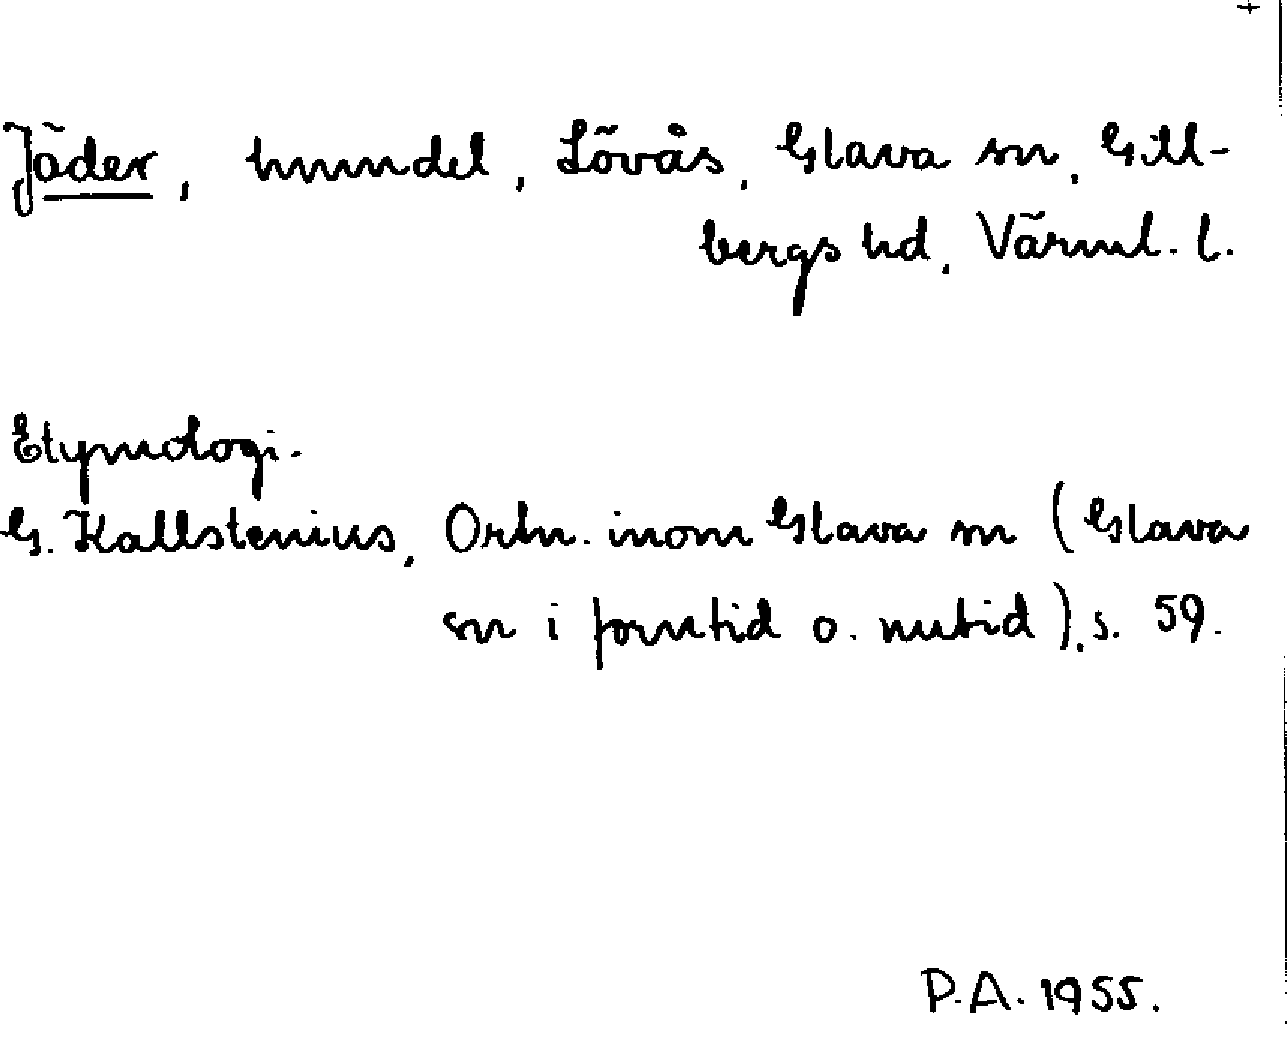 Jäder, hmndel, Lövås, Glava sn, Gill-
bergs hd, Värml. l.
Etymologi.
G. Kallstenius, Ortn. inom Glava sn (Glava
sn i forntid o. nutid), s. 59.
P.A. 1955.